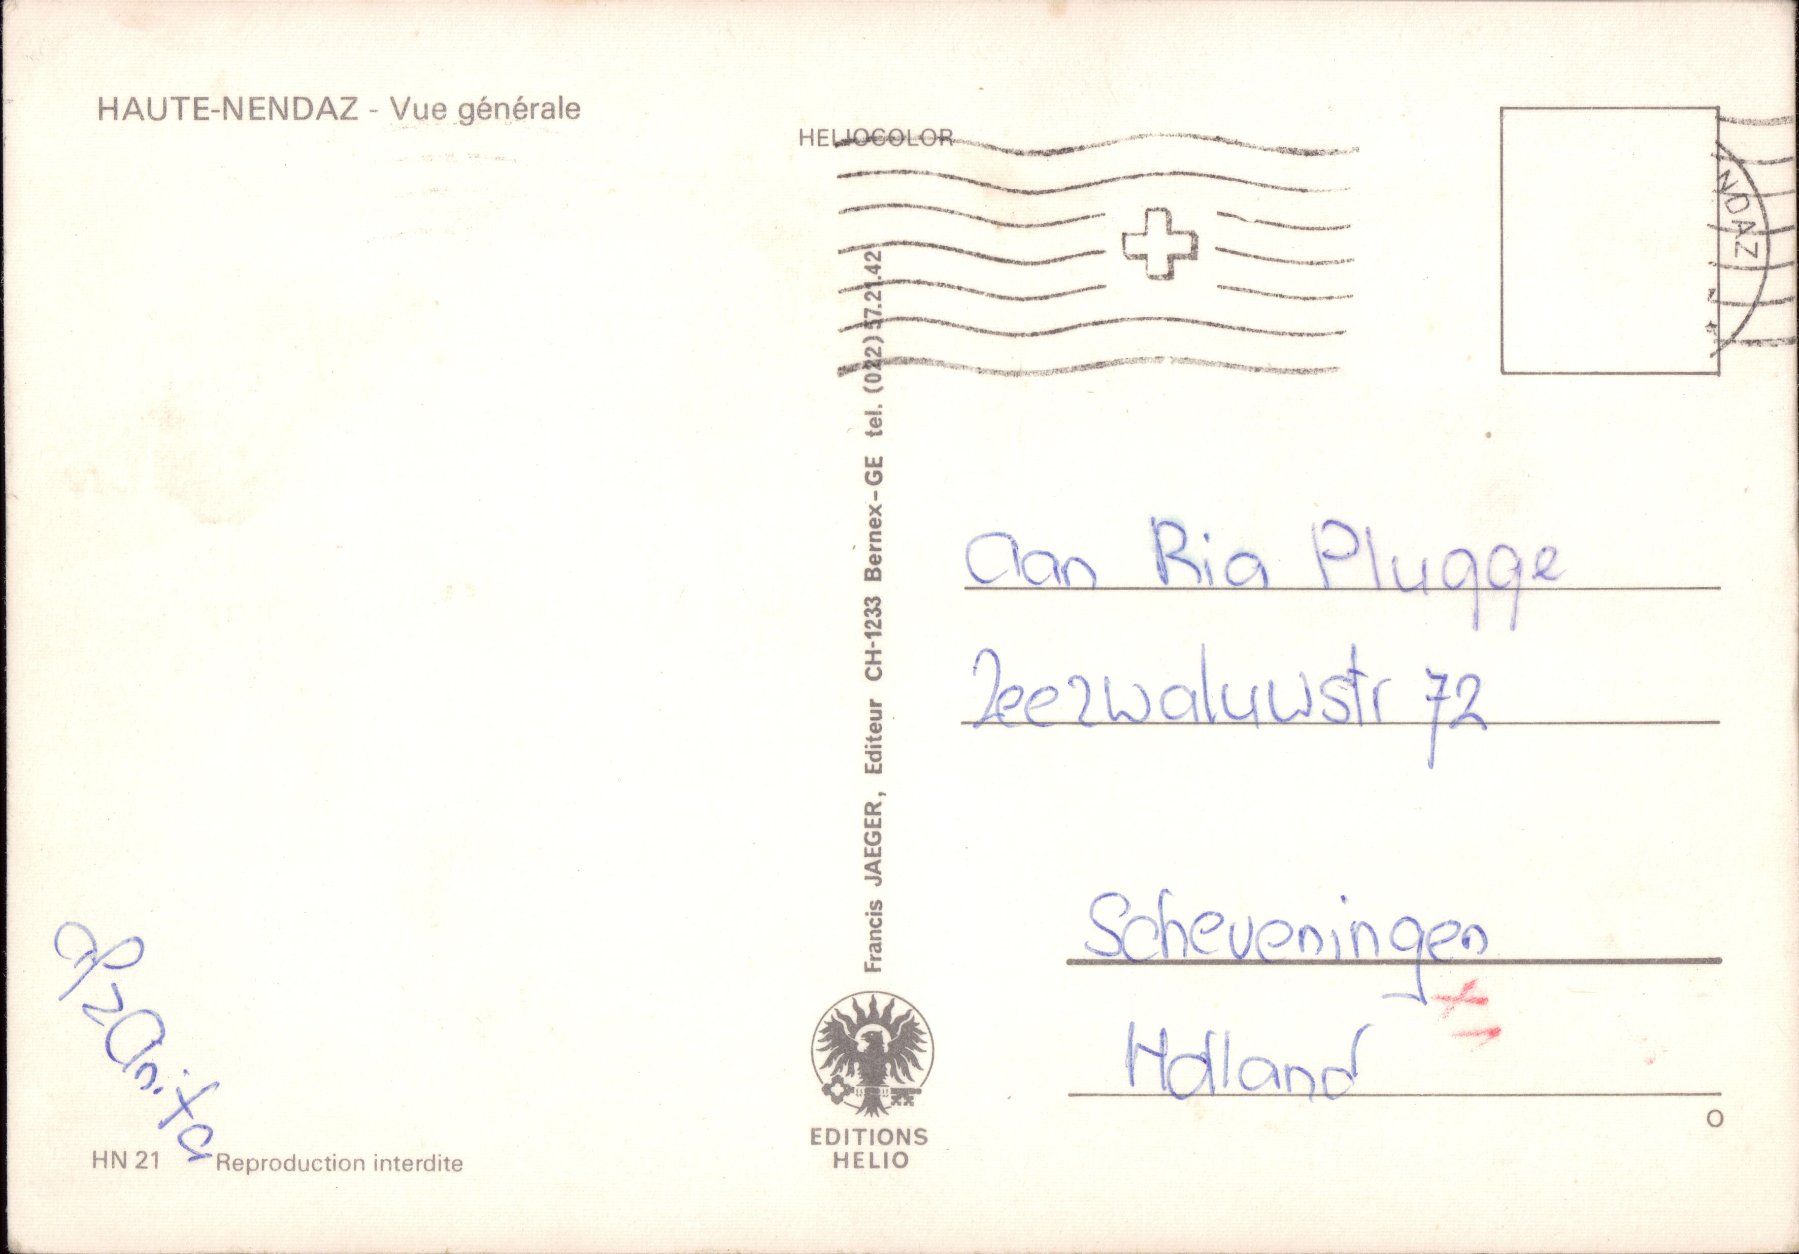 HAUTE-NENDAZ - Vue générale
HELIOCOLOR
NDAZ
Francis JAEGER, Editeur CH-1233 Bernex-GE tel. (022) 57.21.42
aan Ria Plugge
Zeezwaluwstr 72
Scheveningen
Holland
Anita
EDITIONS
HELIO
HN 21
Reproduction interdite
O